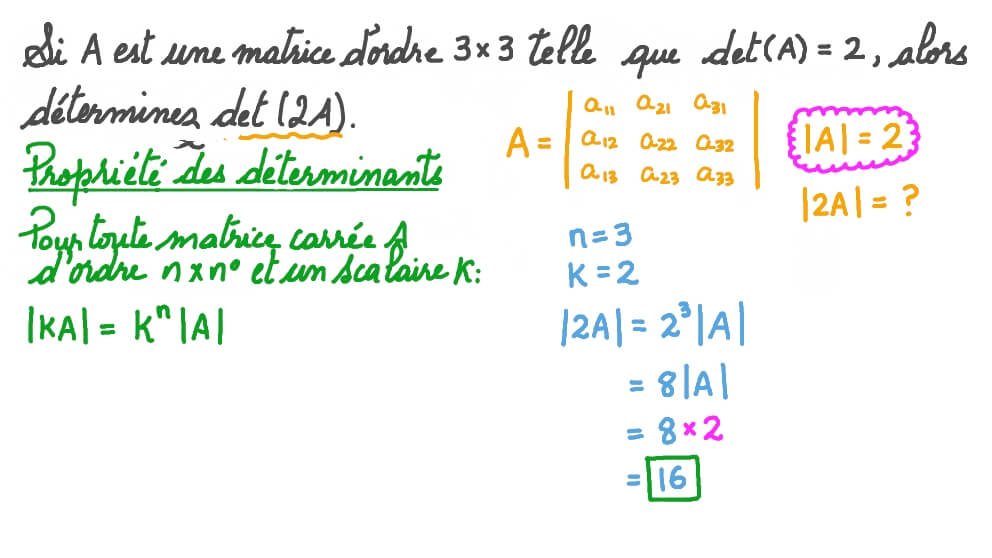 Si A est une matrice d'ordre 3×3 telle que det(A) = 2, alors
détermines det(2A).
Propriété des déterminants
Pour toute matrice carrée A
d'ordre n×n° et un scalaire K:
|KA| = Kⁿ|A|
A = | a₁₁ a₂₁ a₃₁ |
| a₁₂ a₂₂ a₃₂ |
| a₁₃ a₂₃ a₃₃ |
|A| = 2
|2A| = ?
n=3
K=2
|2A| = 2³|A|
= 8|A|
= 8×2
= 16